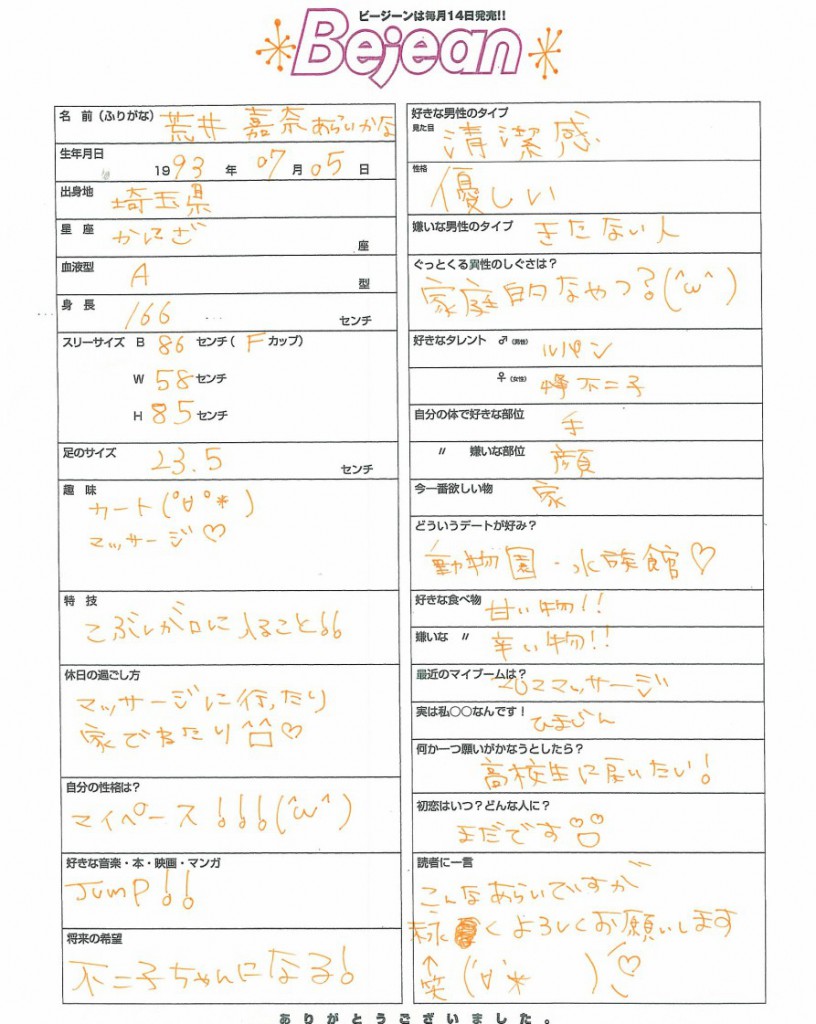 ビージーンは毎月14日発売!!
Bejean
名 前 (ふりがな) 荒井 嘉奈 あらいかな
生年月日
1993 年 07 月 05 日
出身地 埼玉県
星 座 かにざ 座
血液型 A 型
身 長 166 センチ
スリーサイズ B 86 センチ( F カップ)
W 58 センチ
H 85 センチ
足のサイズ 23.5 センチ
趣 味
カート(°∀°*)
マッサージ♡
特 技
こぶしが口に入ること!!
休日の過ごし方
マッサージに行ったり
家でねたり♡
自分の性格は?
マイペース!!!(^ω^)
好きな音楽・本・映画・マンガ
JUMP!!
将来の希望
不二子ちゃんになる!
好きな男性のタイプ
見た目 清潔感
性格
優しい
嫌いな男性のタイプ きたない人
ぐっとくる異性のしぐさは?
家庭的なやつ?(^ω^)
好きなタレント ♂(男性) ルパン
♀(女性) 峰不二子
自分の体で好きな部位 手
〃 嫌いな部位 顔
今一番欲しい物 家
どういうデートが好み?
動物園・水族館♡
好きな食べ物 甘い物!!
嫌いな 〃 辛い物!!
最近のマイブームは?
マッサージ
実は私○○なんです! ひまじん
何か一つ願いがかなうとしたら?
高校生に戻りたい!
初恋はいつ?どんな人に?
まだです
読者に一言
こんなあらいですが
末永くよろしくお願いします
↑
笑 ('∀'* )♡
ありがとうございました。